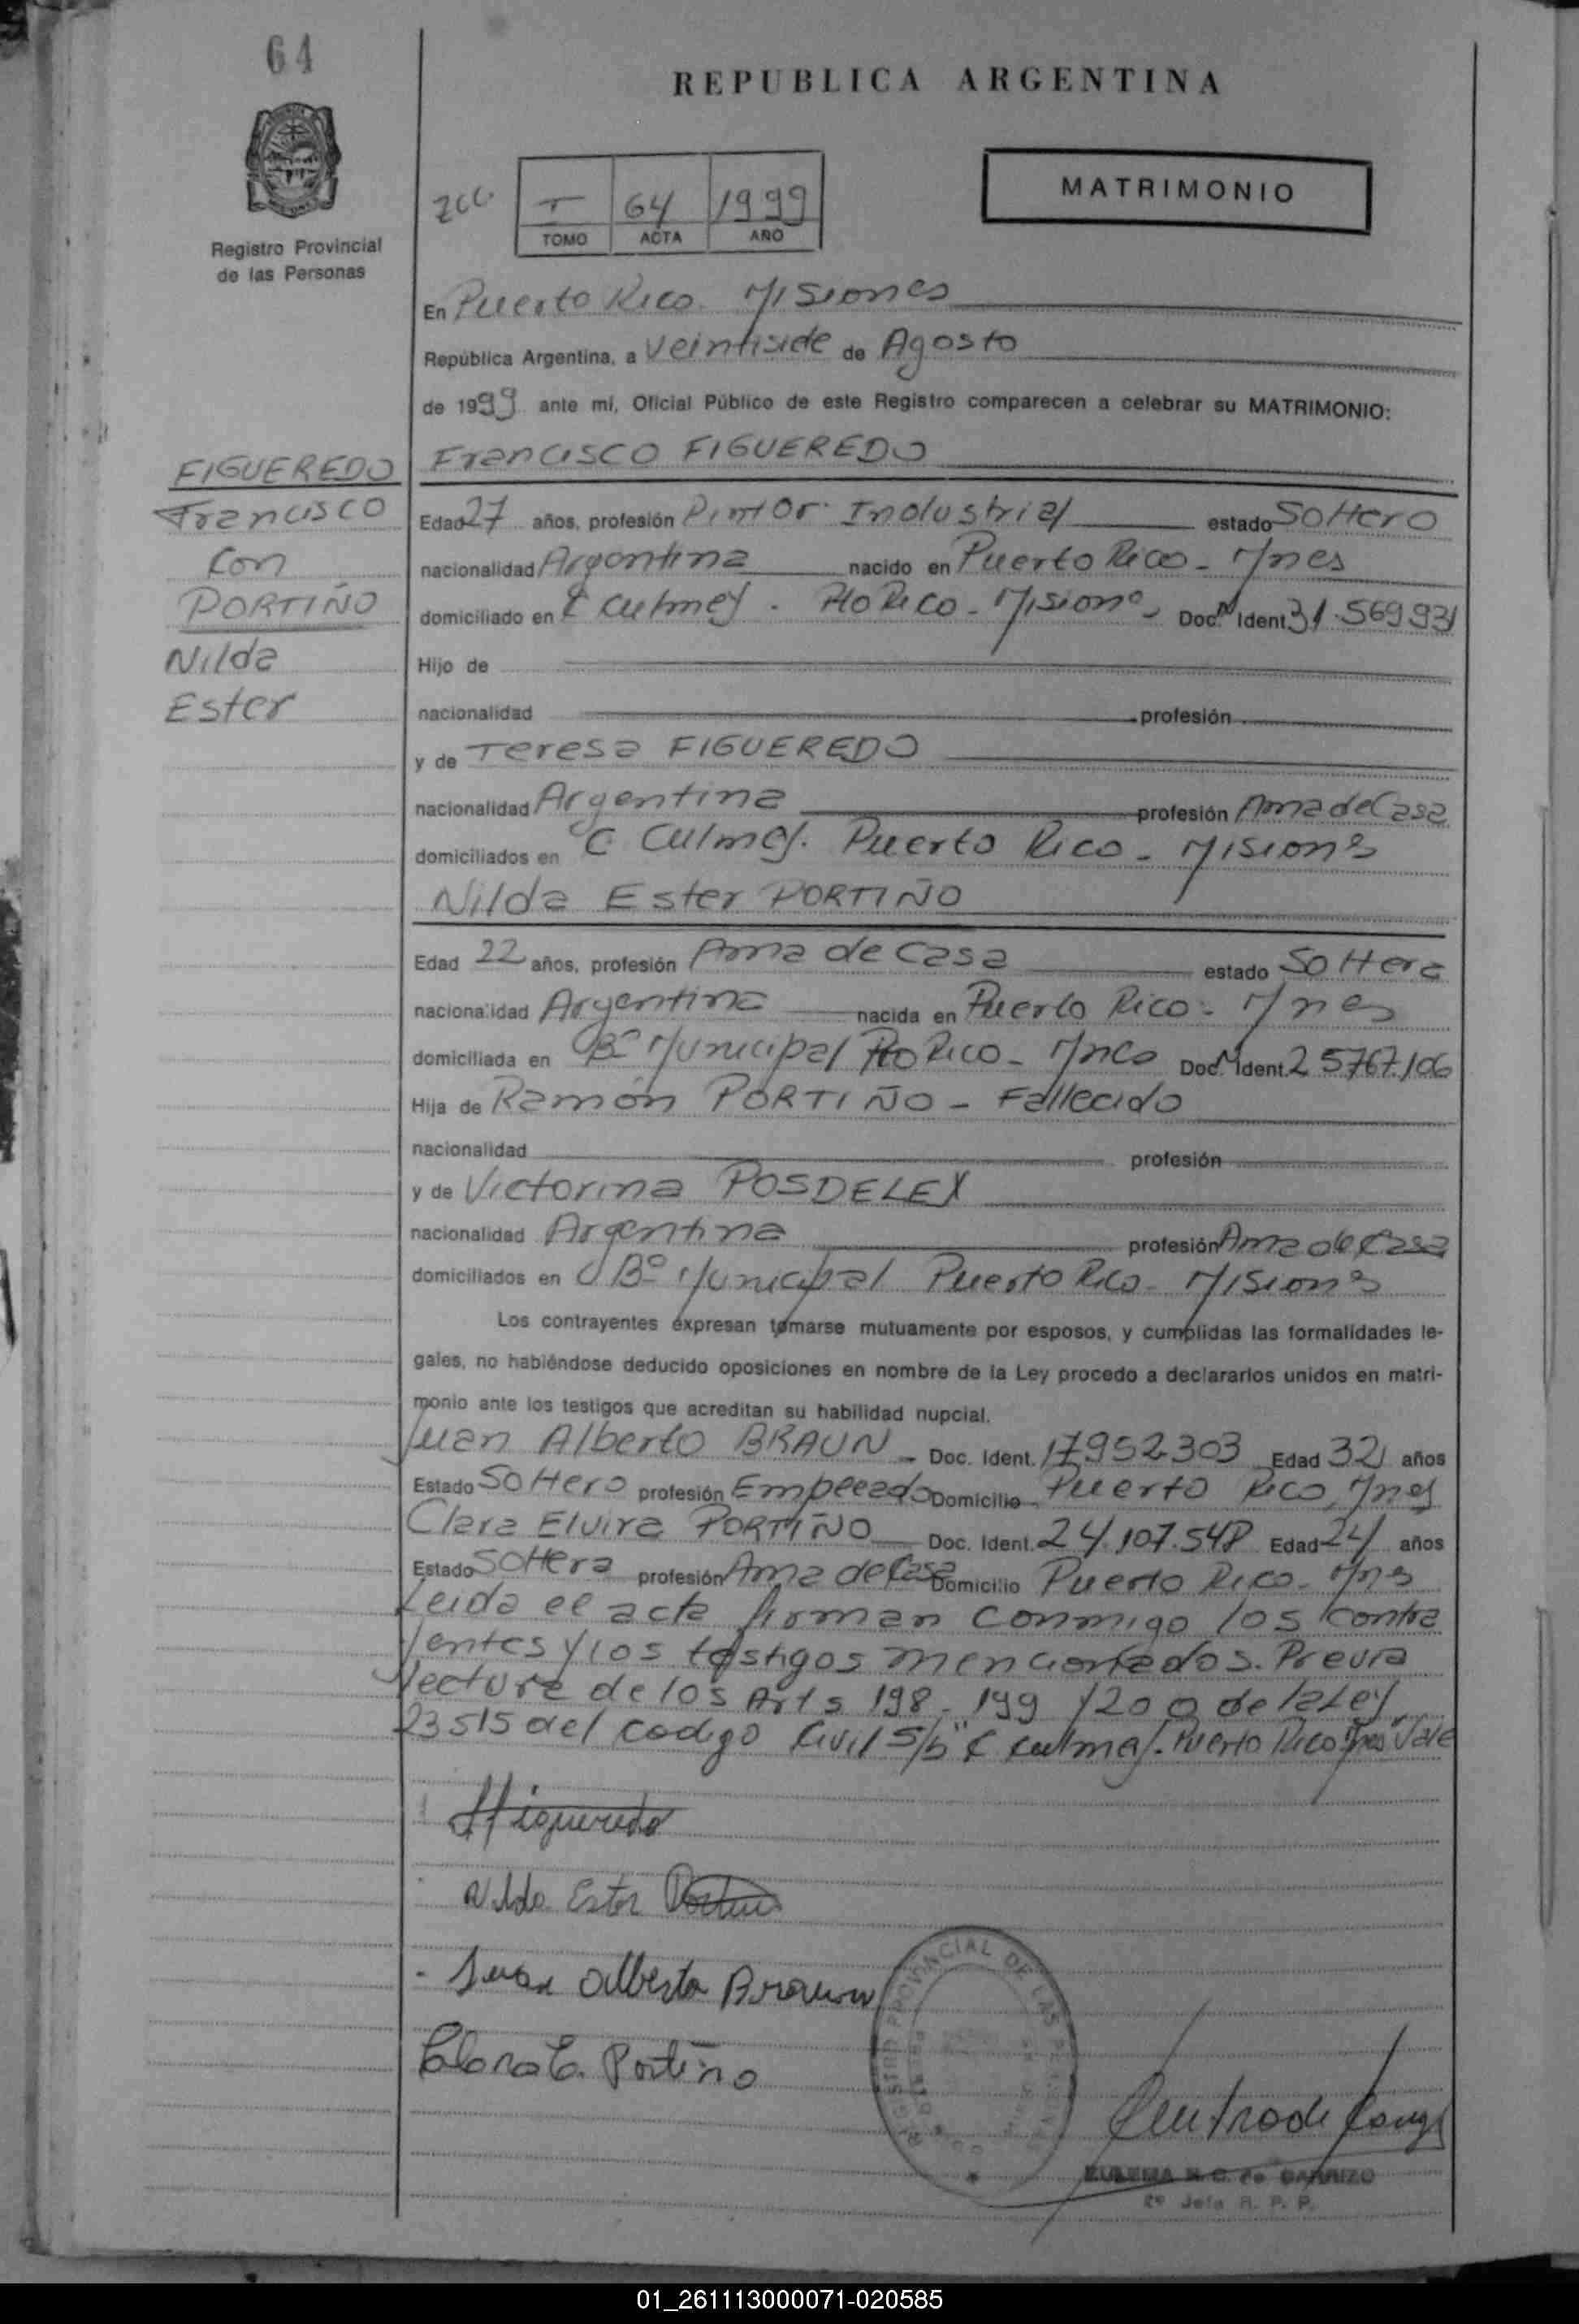 64
REPUBLICA ARGENTINA
MATRIMONIO
T 64 1999
TOMO ACTA AÑO
Registro Provincial
de las Personas
En Puerto Rico. Misiones
República Argentina, a Veintisiete de Agosto
de 1999 ante mí, Oficial Público de este Registro comparecen a celebrar su MATRIMONIO:
FIGUEREDO
Francisco
con
PORTIÑO
Nilda
Ester
Francisco FIGUEREDO
Edad 27 años, profesión Pintor Industrial estado Soltero
nacionalidad Argentina nacido en Puerto Rico - Mnes
domiciliado en C Culmey. Pto Rico - Misiones Doc. N Ident 31.569.931
Hijo de
nacionalidad profesión
y de Teresa FIGUEREDO
nacionalidad Argentina profesión Ama de Casa
domiciliados en C Culmey. Puerto Rico - Misiones
Nilda Ester PORTIÑO
Edad 22 años, profesión Ama de Casa estado Soltera
nacionalidad Argentina nacida en Puerto Rico - Mnes
domiciliada en Bº Municipal Pto Rico - Mnes Doc. N Ident. 25767.106
Hija de Ramón PORTIÑO - Fallecido
nacionalidad profesión
y de Victorina POSDELEX
nacionalidad Argentina profesión Ama de Casa
domiciliados en Bº Municipal Puerto Rico - Misiones
Los contrayentes expresan tomarse mutuamente por esposos, y cumplidas las formalidades le-
gales, no habiéndose deducido oposiciones en nombre de la Ley procedo a declararlos unidos en matri-
monio ante los testigos que acreditan su habilidad nupcial.
Juan Alberto BRAUN - Doc. Ident. 17.952.303 Edad 32 años
Estado Soltero profesión Empleado Domicilio Puerto Rico, Mnes
Clara Elvira PORTIÑO Doc. Ident. 24.107.548 Edad 24 años
Estado Soltera profesión Ama de Casa Domicilio Puerto Rico - Mnes
Leida el acta firman conmigo los contra
yentes y los testigos mencionados. Previa
lectura de los Arts 198 - 199 y 200 de la Ley
23515 del codigo Civil S/b "C Culmey. Puerto Rico Mnes" Vale
Figueredo
Nilda Ester Portiño
Juan Alberto Braun
Clara E. Portiño
REGISTRO PROVINCIAL DE LAS PERSONAS
ZULEMA R. C. de CARRIZO
2º Jefa R. P. P.
01_261113000071-020585